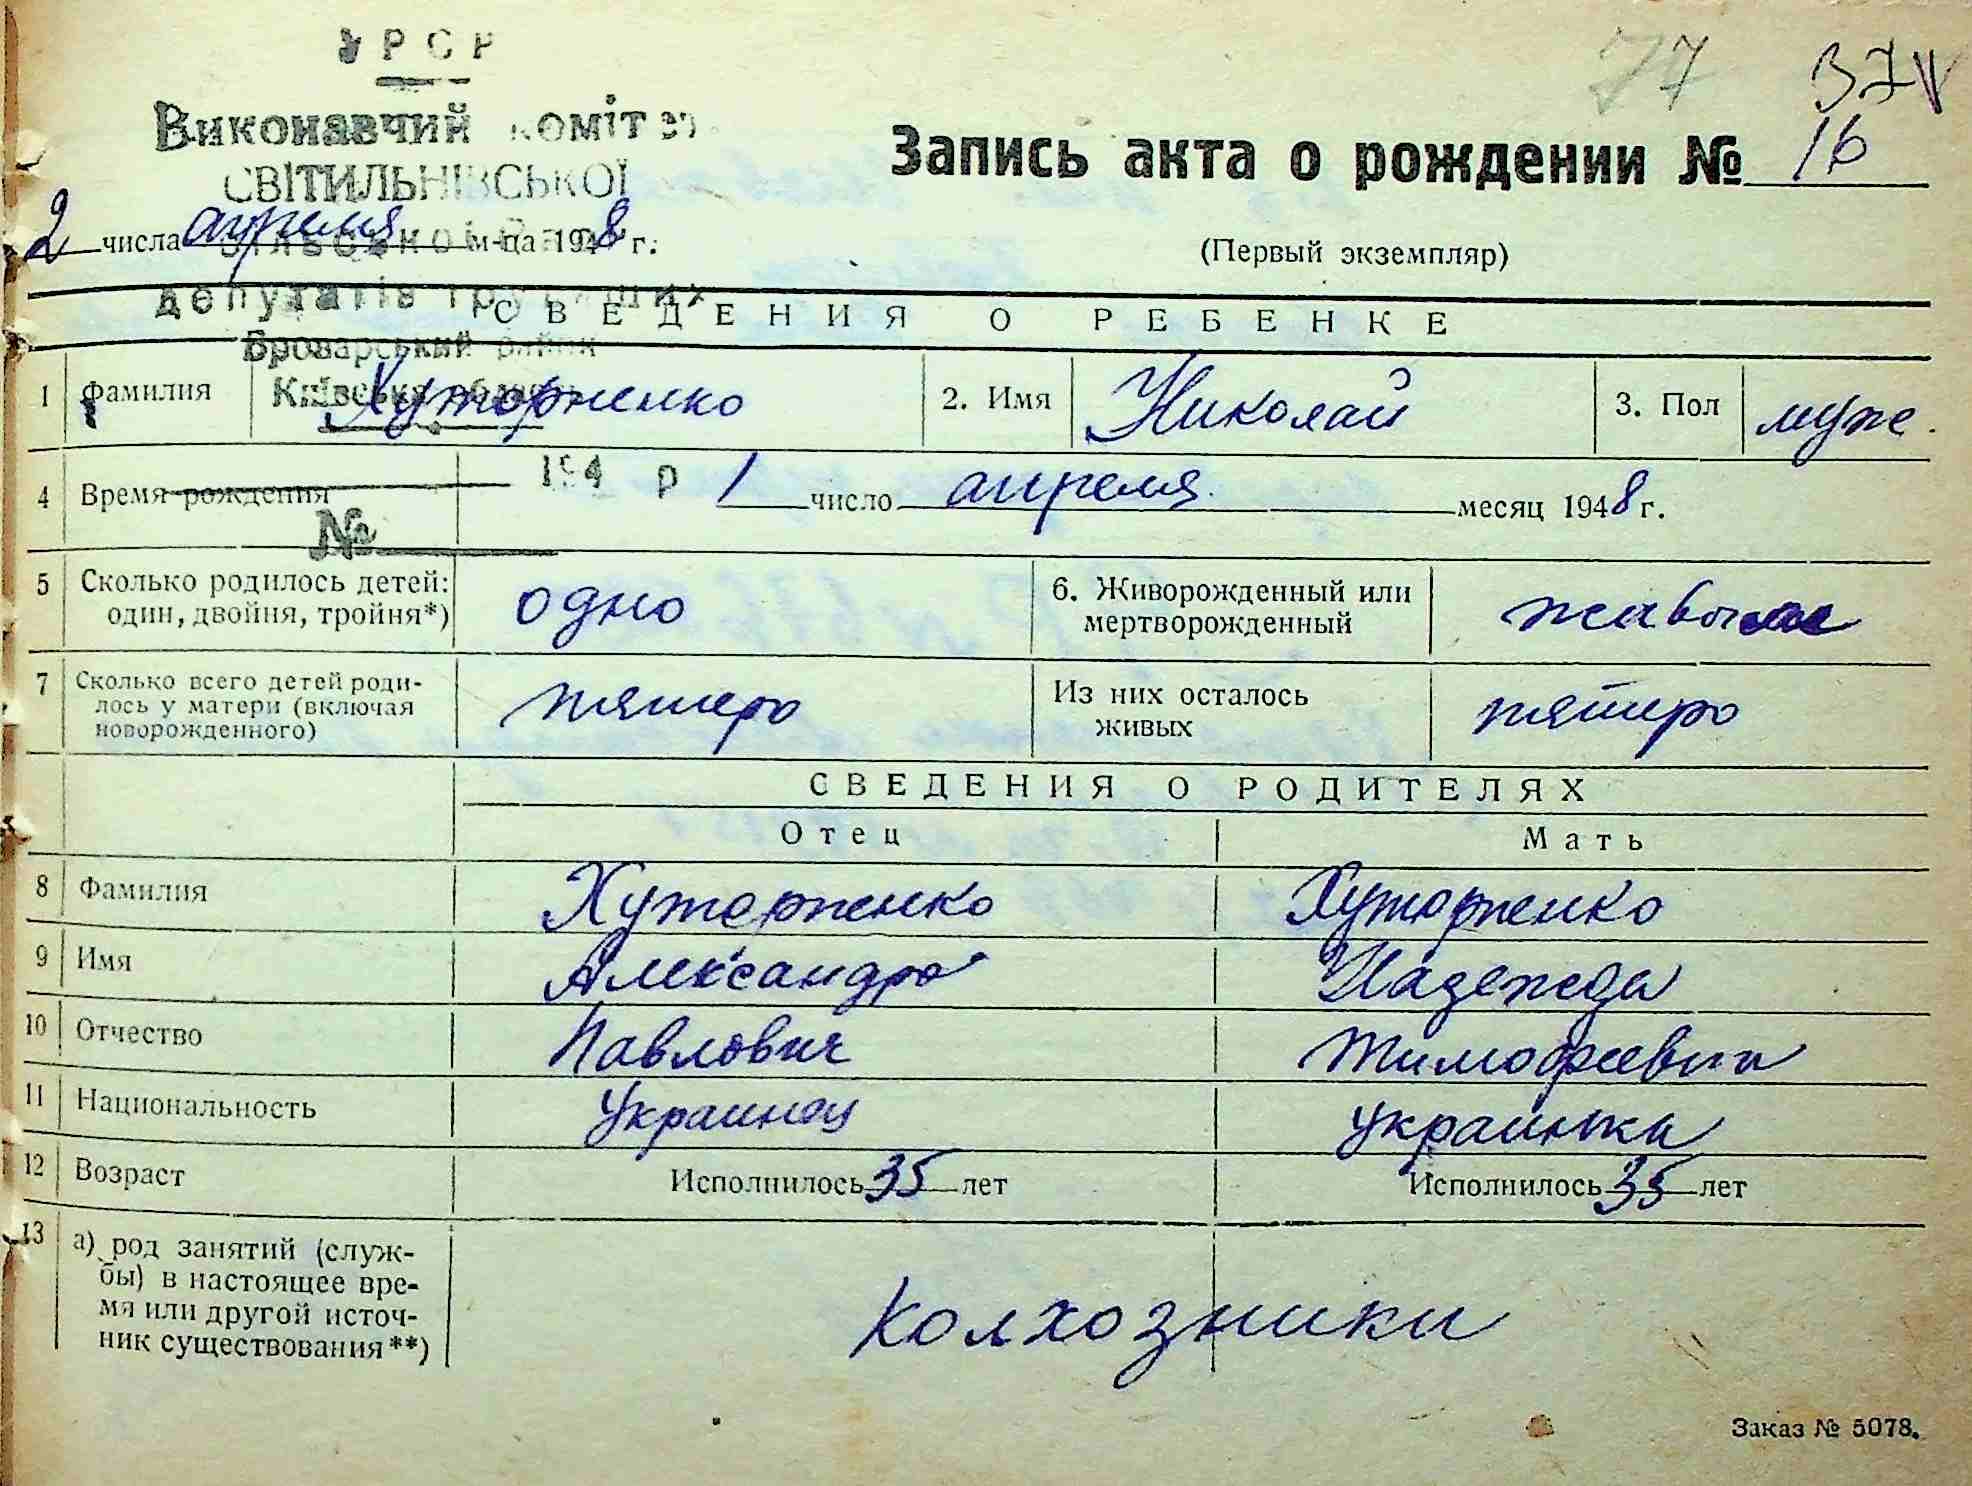 УРСР
77 37
Виконавчий комітет
Запись акта о рождении № 16
СВІТИЛЬНІВСЬКОЇ
2 числа апреля м-ца 1948 г.
(Первый экземпляр)
депутатів трудящих
СВЕДЕНИЯ О РЕБЕНКЕ
Броварський район
Київська область
1 Фамилия Хуторненко 2. Имя Николай 3. Пол муж.
194 р
4 Время рождения 1 число апреля месяц 1948 г.
№
5 Сколько родилось детей: один, двойня, тройня*) одно 6. Живорожденный или мертворожденный живым
7 Сколько всего детей родилось у матери (включая новорожденного) пятеро Из них осталось живых пятеро
СВЕДЕНИЯ О РОДИТЕЛЯХ
Отец Мать
8 Фамилия Хуторненко Хуторненко
9 Имя Александр Надежда
10 Отчество Павлович Тимофеевна
11 Национальность Украинец украинка
12 Возраст Исполнилось 35 лет Исполнилось 35 лет
13 а) род занятий (служ-
бы) в настоящее вре-
мя или другой источ-
ник существования**) колхозники
Заказ № 5078.